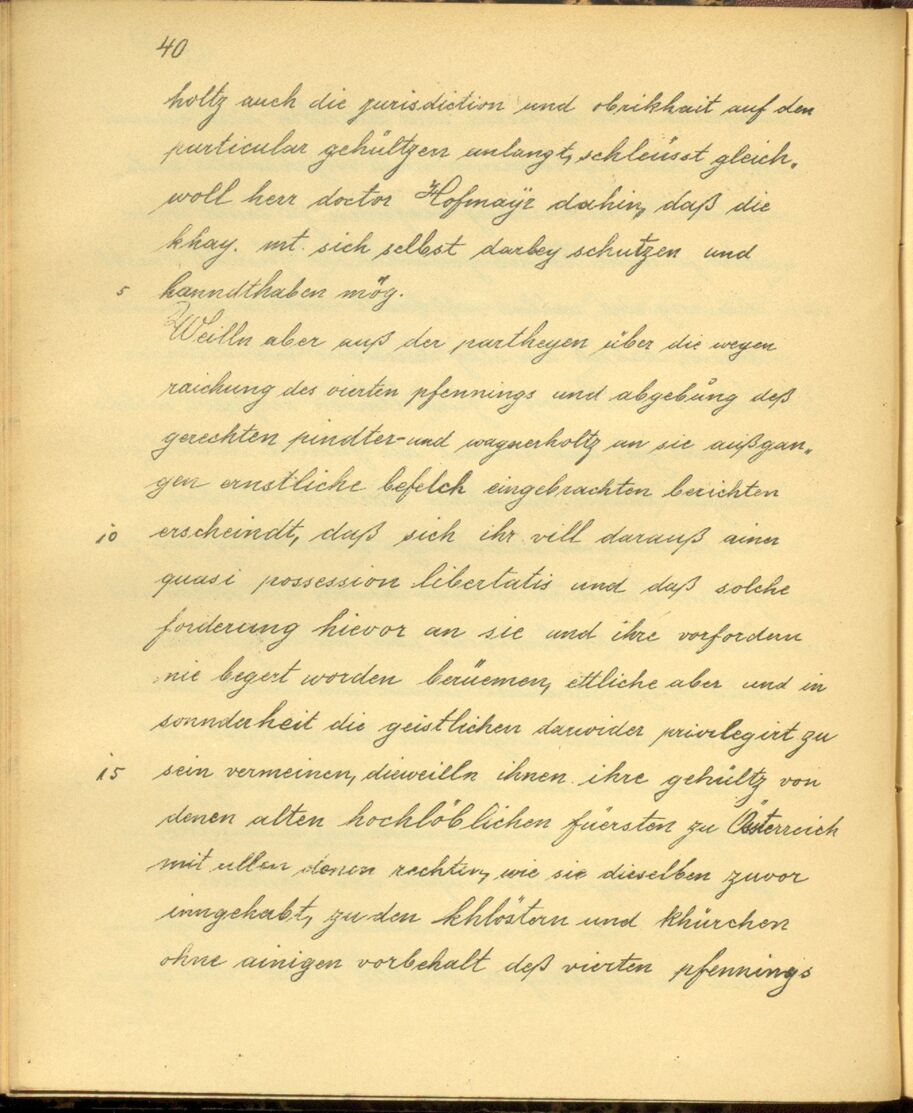 40
holtz auch die jurisdiction und obrikhait auf den
particular gehültzen anlangt, schleüsst gleich„
woll herr doctor Hofmayr dahin, daß die
khay. mt. sich selbst darbey schutzen und
5 hanndthaben mög.
Weilln aber auß der partheyen über die wegen
raichung des vierten pfennings und abgebung deß
gerechten pindter- und wagnerholtz an sie außgan„
gen ernstliche befelch eingebrachten berichten
10 erscheindt, daß sich ihr vill darauß ainer
quasi possession libertatis und daß solche
forderung hievor an sie und ihre vorfordern
nie begert worden berüemen, ettliche aber und in
sonnderheit die geistlichen darwider privilegirt zu
15 sein vermeinen, dieweilln ihnen ihre gehültz von
denen alten hochlöblichen füersten zu Österreich
mit allen denen rechten, wie sie dieselben zuvor
inngehabt, zu den khlöstern und khürchen
ohne ainigen vorbehalt deß vierten pfennings